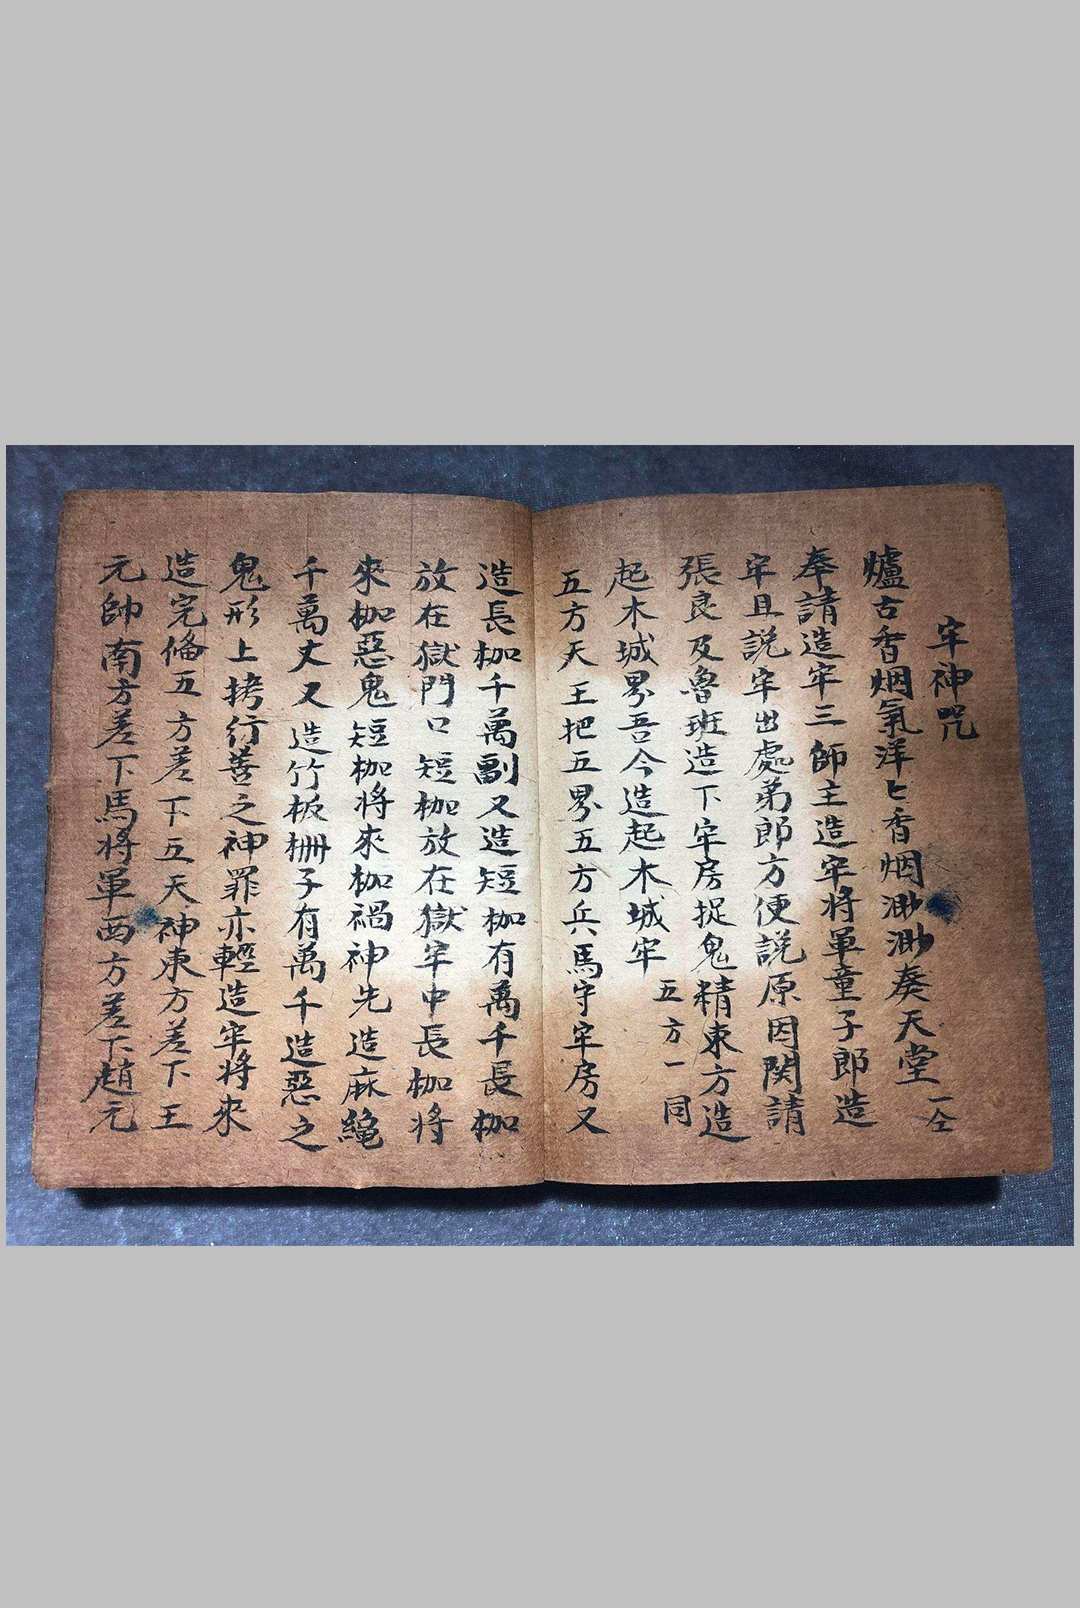 牢神咒
爐古香烟氣洋〻香烟渺渺奏天堂一仝
奉請造牢三師主造牢將軍童子郎造
牢且説牢出處弟郎方便説原因関請
張良及魯班造下牢房捉鬼精東方造
起木城界吾今造起木城牢 五方一同
五方天王把五界五方兵馬守牢房又
造長枷千萬副又造短枷有萬千長枷
放在獄門口短枷放在獄牢中長枷將
來枷惡鬼短枷將來枷禍神先造麻繩
千萬丈又造竹板栅子有萬千造惡之
鬼形上拷行善之神罪亦輕造牢將來
造完俻五方差下五天神東方差下王
元帥南方差下馬將軍西方差下趙元